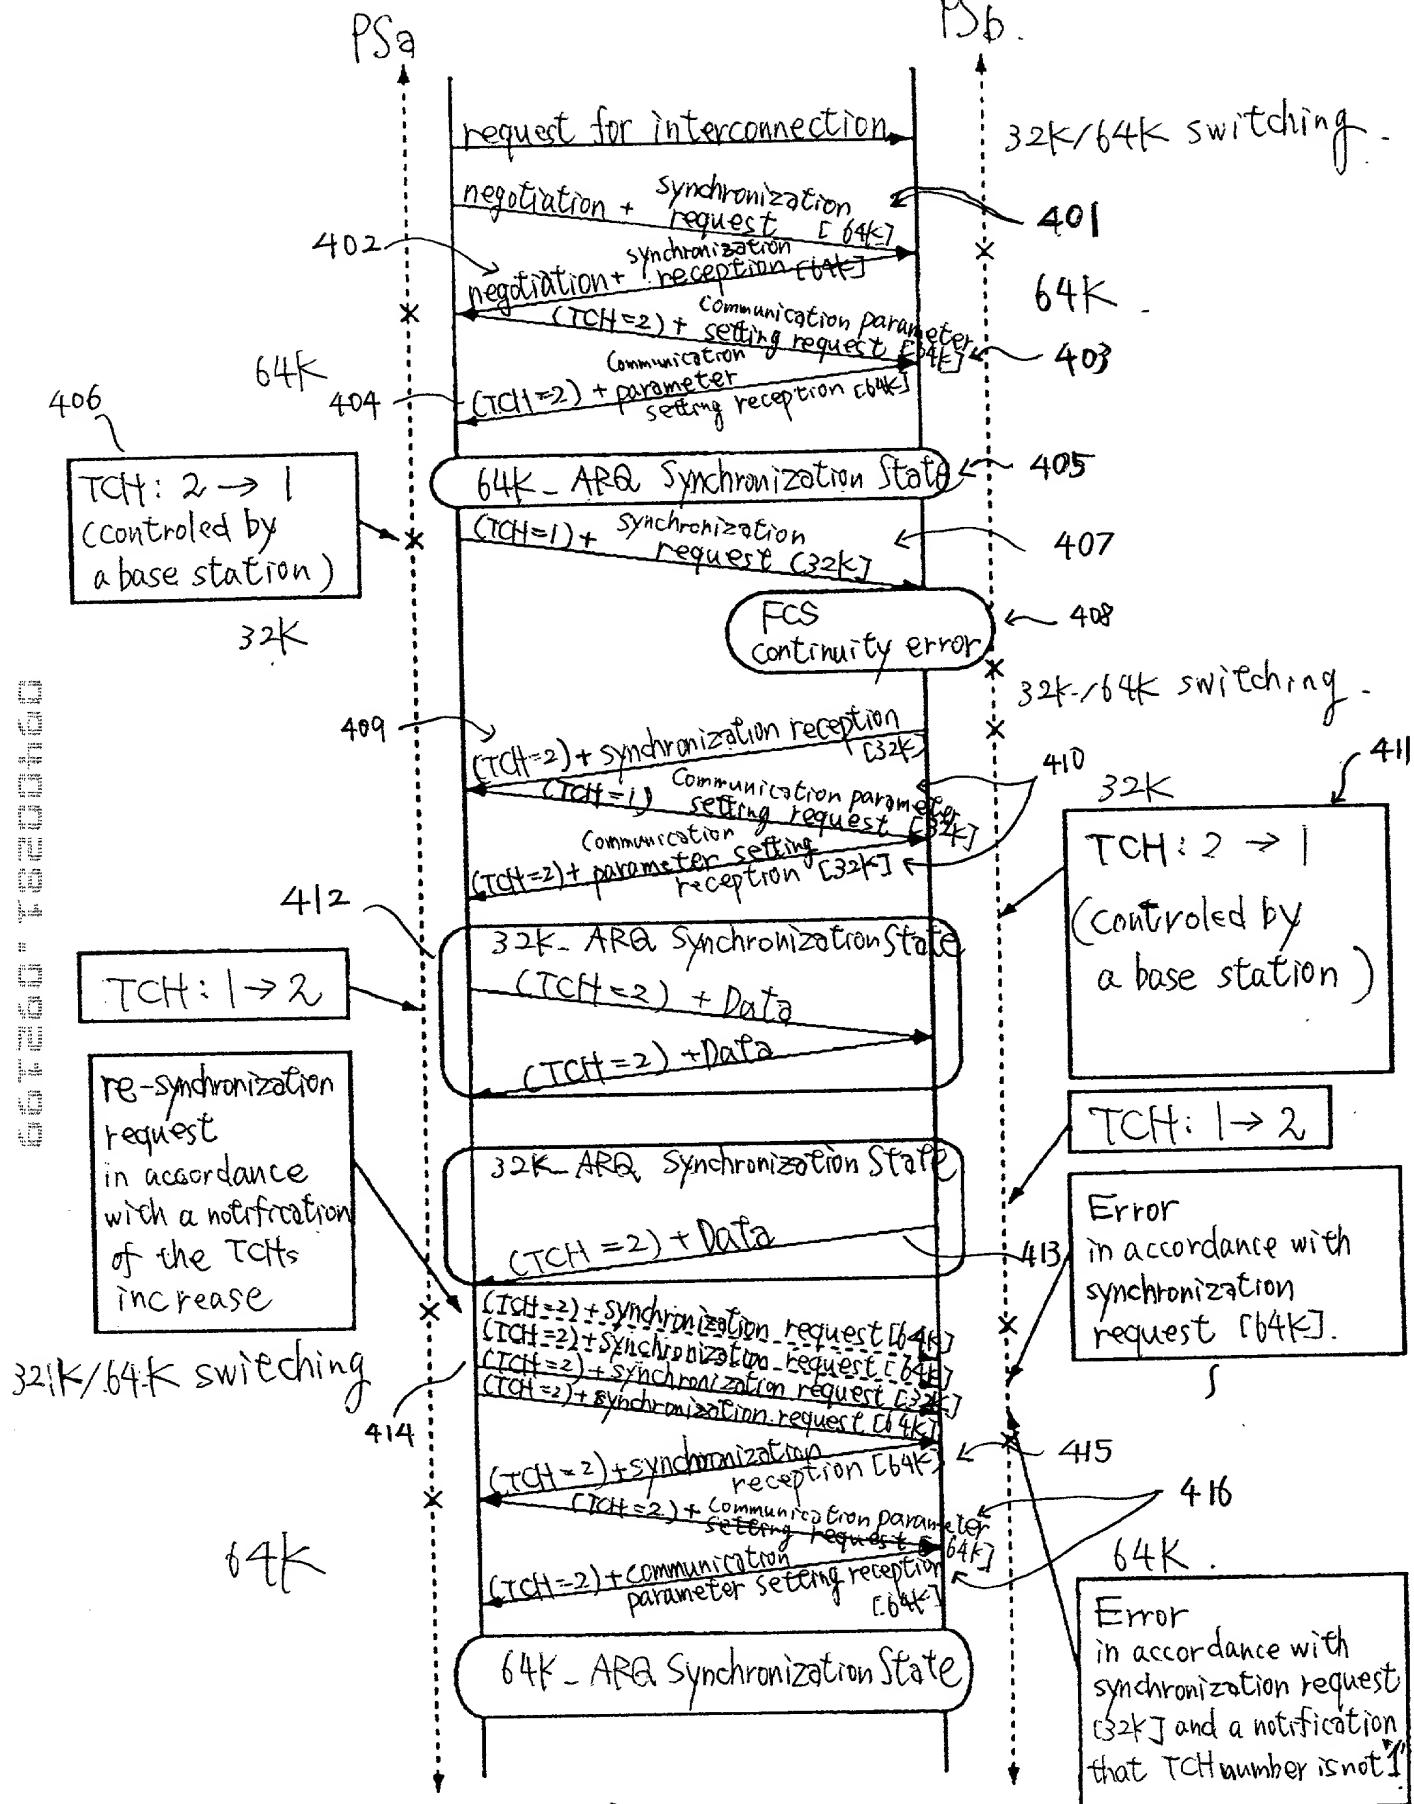 PSa
PSb.
request for interconnection
32K/64K switching.
negotiation + synchronization
request [64K]
401
402
synchronization
negotiation + reception [64K]
64K.
Communication parameter
(TCH=2) + setting request [64K]
403
64K
Communication
404
(TCH=2) + parameter
setting reception [64K]
406
TCH: 2 → 1
(controled by
a base station)
64K_ ARQ Synchronization State
405
(TCH=1) + synchronization
request [32K]
407
32K
FCS
continuity error
408
32K/64K switching.
409
(TCH=2) + synchronization reception
[32K]
410
411
(TCH=1) Communication parameter
setting request [32K]
32K
Communication
(TCH=2) + parameter setting
reception [32K]
TCH: 2 → 1
(controled by
a base station)
412
32K_ ARQ Synchronization State
TCH: 1 → 2
(TCH=2) + Data
(TCH=2) + Data
re-synchronization
request
in accordance
with a notification
of the TCHs
increase
TCH: 1 → 2
32K_ ARQ Synchronization State
(TCH=2) + Data
413
Error
in accordance with
synchronization
request [64K].
(TCH=2) + synchronization request [64K]
(TCH=2) + synchronization request [64K]
(TCH=2) + synchronization request [32K]
(TCH=2) + synchronization request [64K]
32K/64K switching
414
(TCH=2) + synchronization
reception [64K]
415
(TCH=2) + Communication parameter
setting request [64K]
416
64K
64K.
(TCH=2) + Communication
parameter setting reception
[64K]
Error
in accordance with
synchronization request
[32K] and a notification
that TCH number is not "1"
64K_ ARQ Synchronization State